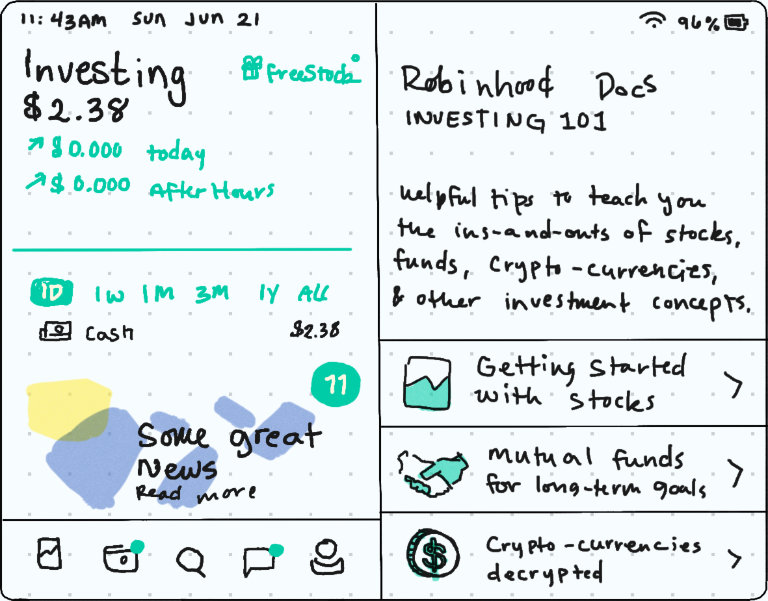 11:43AM Sun Jun 21
96%
Investing
FreeStock
$2.38
$0.000 today
$0.000 After Hours
1D 1W 1M 3M 1Y ALL
Cash $2.38
11
Some great
News
Read more
Robinhood Docs
INVESTING 101
helpful tips to teach you
the ins-and-outs of stocks,
funds, crypto-currencies,
& other investment concepts.
Getting Started
with stocks
mutual funds
for long-term goals
$
Crypto-currencies
decrypted